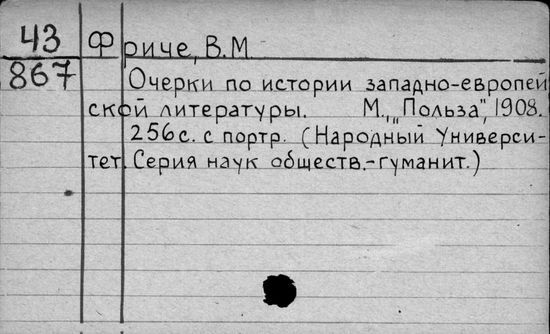 43
867
Фриче, В.М.
Очерки по истории западно-европей
ской литературы. М., "Польза", 1908.
256с. с портр. (Народный Универси-
тет. Серия наук обществ.-гуманит.)